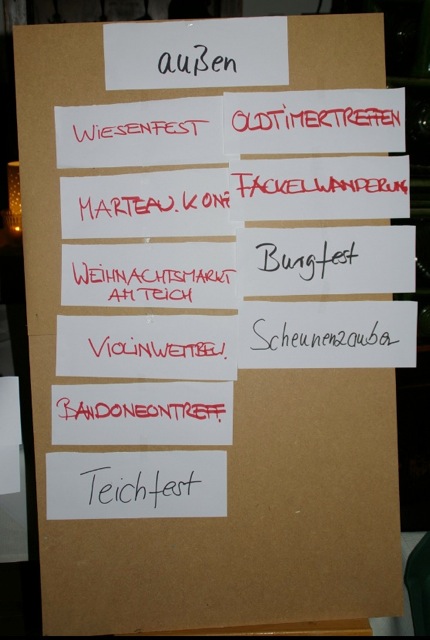 außen
WIESENFEST
MARTEAU. KON
WEIHNACHTSMARKT
AM TEICH
VIOLINWETTBEW.
BANDONEONTREFF.
Teichfest
OLDTIMERTREFFEN
FACKELWANDERUNG
Burgfest
Scheunenzauber